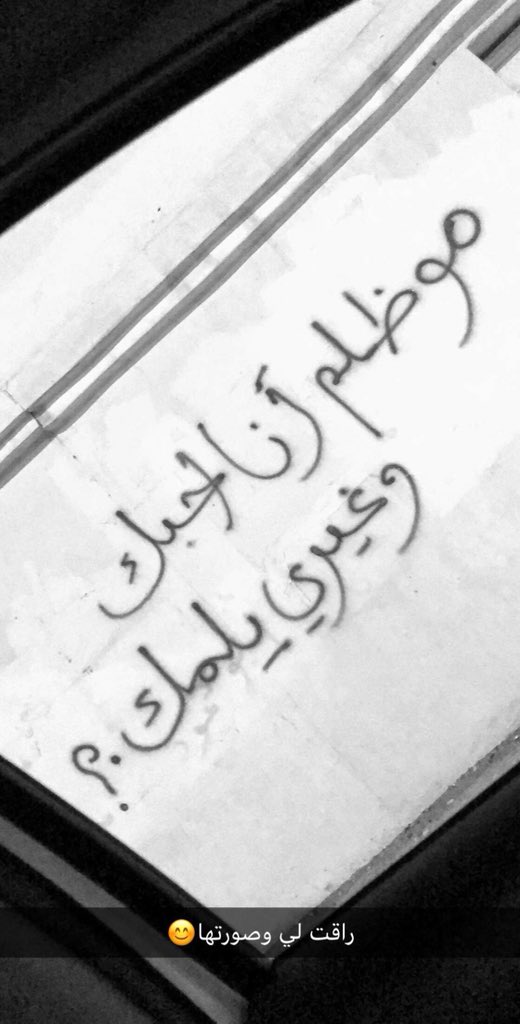 مو ظلم أنا احبك
وغيري يلمك.؟
راقت لي وصورتها😊